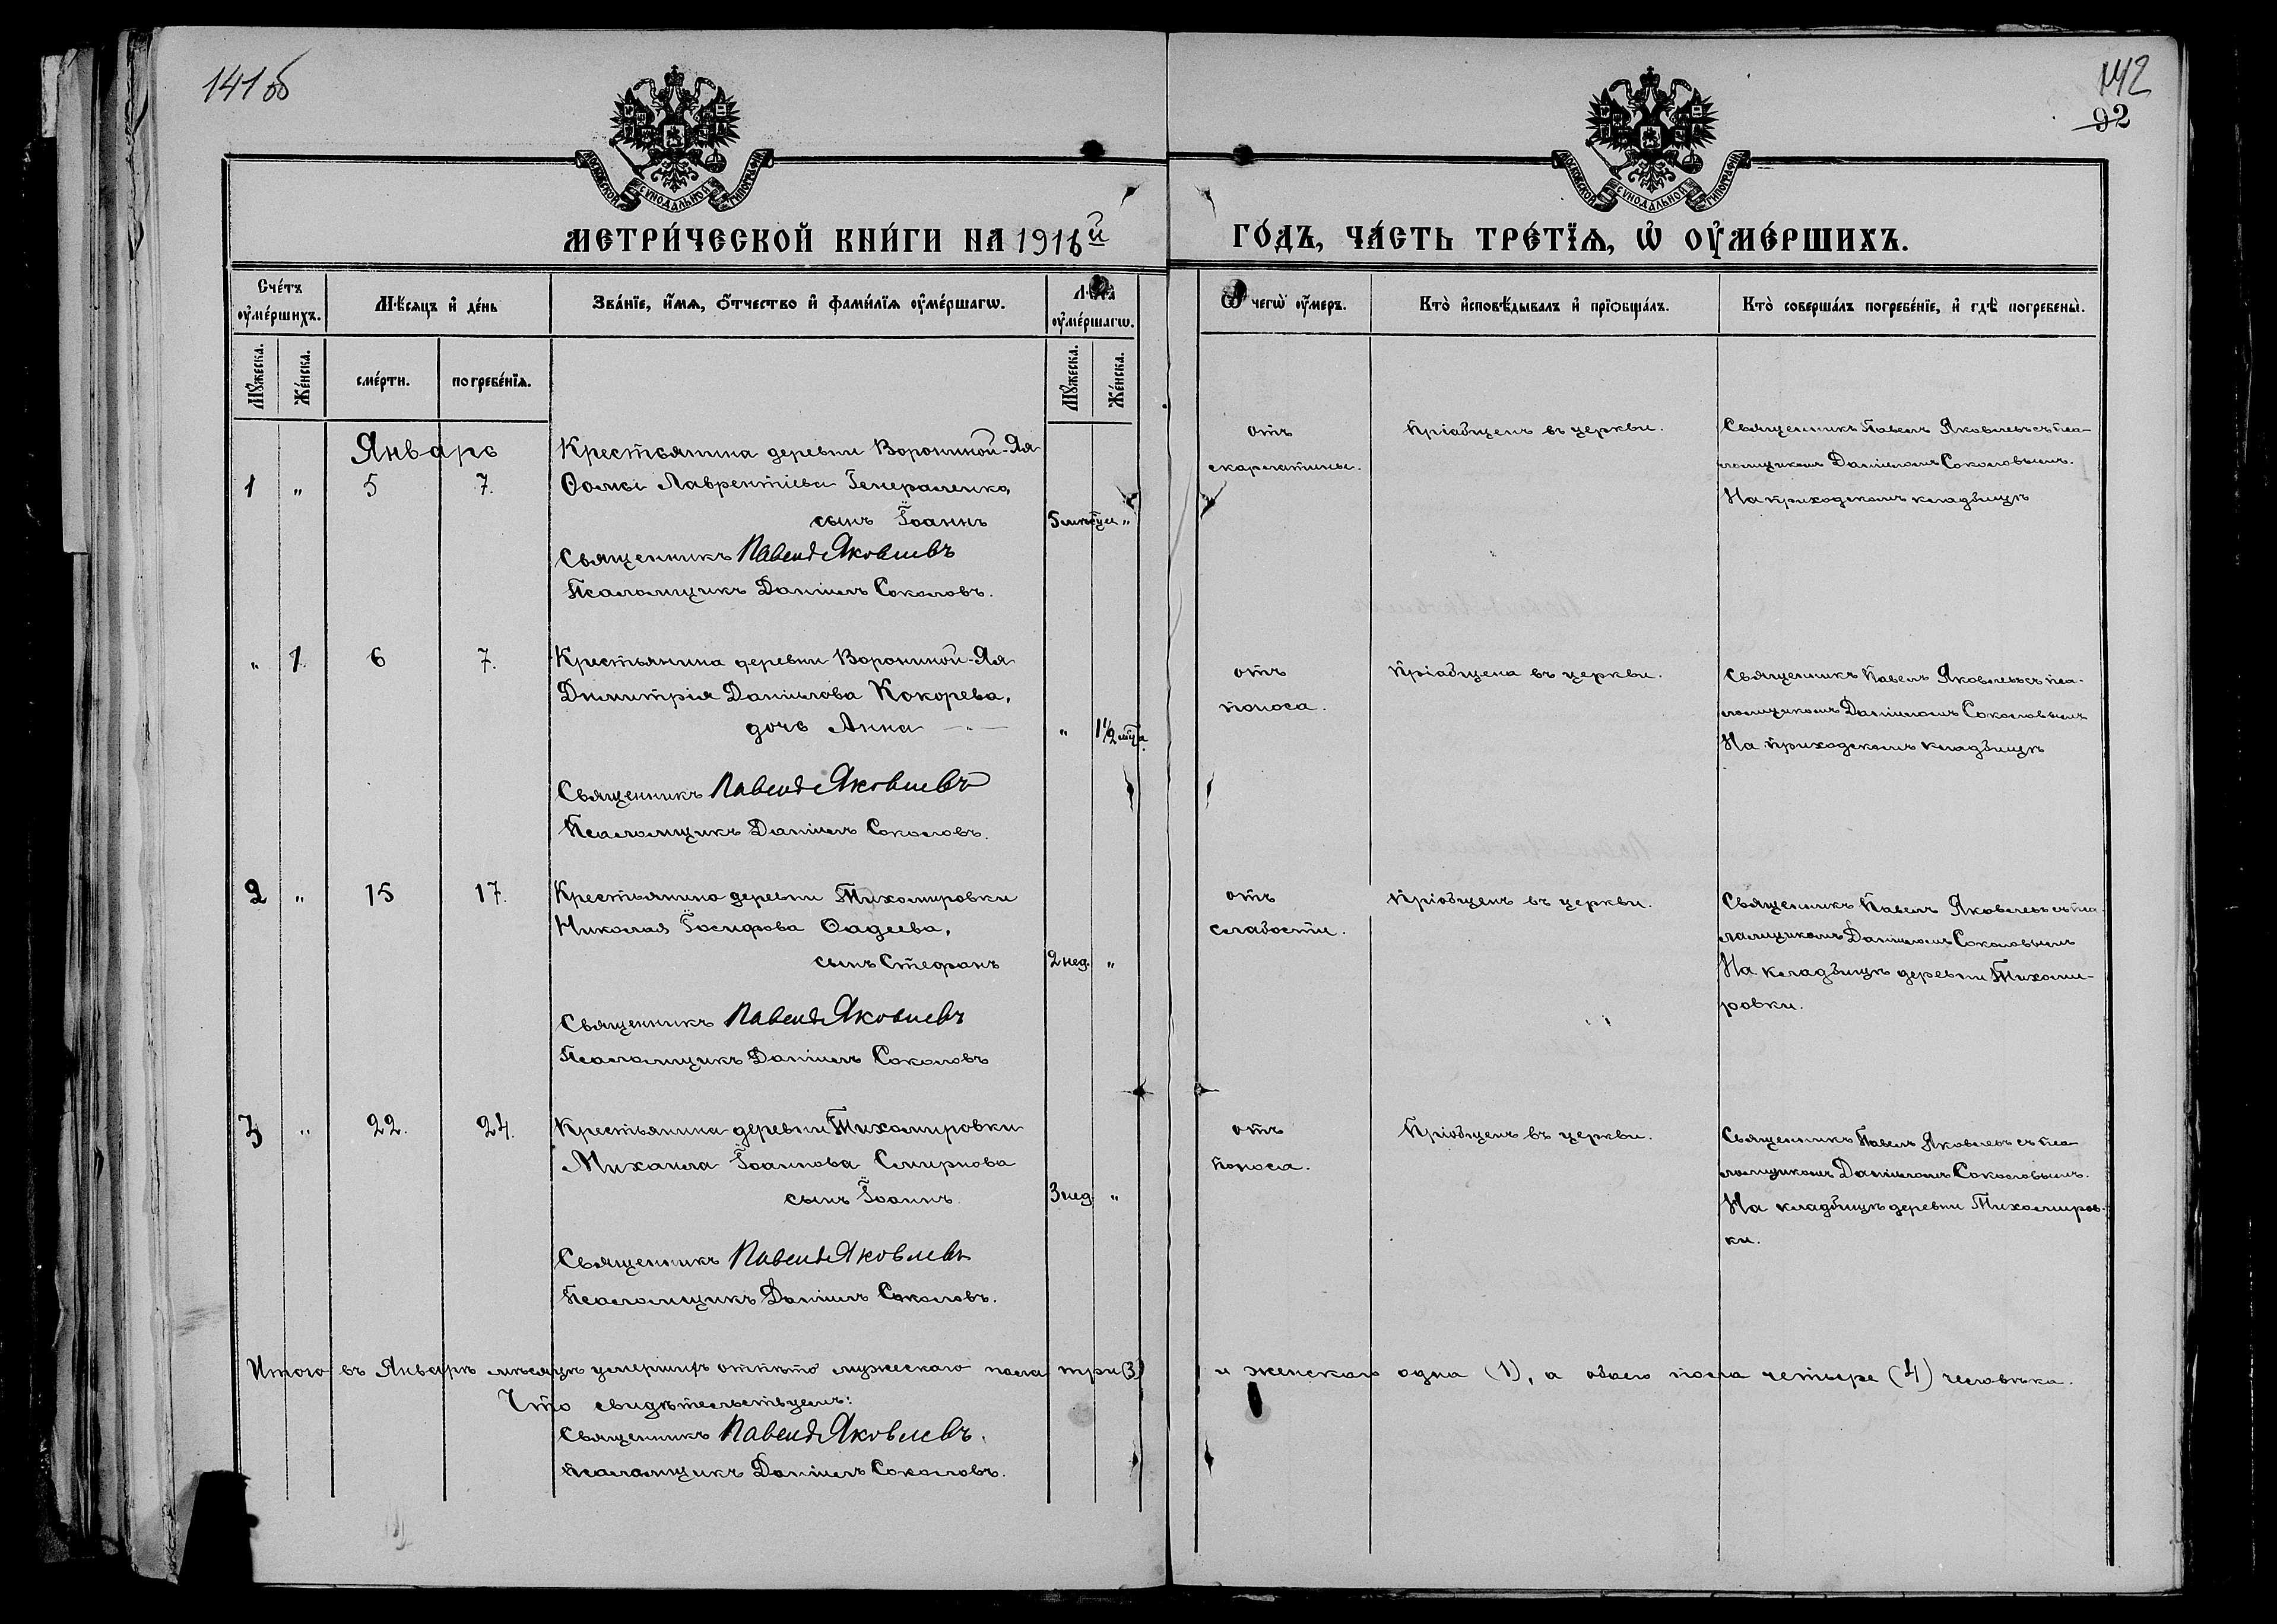 141об
142
92
МОСКОВСКОЙ СУНОДАЛЬНОЙ ТИПОГРАФІИ
МОСКОВСКОЙ СУНОДАЛЬНОЙ ТИПОГРАФІИ
МЕТРИ́ЧЕСКОЙ КНИ́ГИ НА 1916й
ГО́ДЪ, ЧА́СТЬ ТРЕ́ТЇѦ, Ѡ҆ ОУ҆МЕ́РШИХЪ.
Сче́тъ оу҆ме́ршихъ.
Мѣ́сѧцъ и҆ де́нь
Зва́нїе, и҆́мѧ, ѻ҆́тчество и҆ фами́лїѧ оу҆ме́ршагѡ.
Лѣ́та оу҆ме́ршагѡ.
Ѿ чегѡ̀ оу҆́меръ.
Кто̀ и҆сповѣ́дывалъ и҆ прїѻбща́лъ.
Кто̀ соверша́лъ погребе́нїе, и҆ гдѣ̀ погребены̀.
Мꙋ́жеска.
Же́нска.
сме́рти.
погребе́нїѧ.
Мꙋ́жеска.
Же́нска.
Январь
1 " 5 7.
Крестьянина деревни Ворониной-Яя
Ѳомы Лаврентіева Генераленко,
сынъ Іоаннъ
5 мѣсяц "
Священникъ Павелъ Яковлевъ
Псаломщикъ Даніилъ Соколовъ.
отъ
скарлатины.
Пріобщенъ въ церкви.
Священникъ Павелъ Яковлевъ съ пса-
ломщикомъ Даніиломъ Соколовымъ.
На приходскомъ кладбищѣ
" 1. 6 7.
Крестьянина деревни Ворониной-Яя
Димитрія Даніилова Кокорева,
дочь Анна
" 1½ мѣсяца
Священникъ Павелъ Яковлевъ
Псаломщикъ Даніилъ Соколовъ.
отъ
поноса.
Пріобщена въ церкви.
Священникъ Павелъ Яковлевъ съ пса-
ломщикомъ Даніиломъ Соколовымъ
На приходскомъ кладбищѣ
2 " 15 17.
Крестьянина деревни Тихомировки
Николая Іосифова Ѳадеева,
сынъ Стефанъ
2 нед. "
Священникъ Павелъ Яковлевъ
Псаломщикъ Даніилъ Соколовъ
отъ
слабости.
Пріобщенъ въ церкви.
Священникъ Павелъ Яковлевъ съ пса-
ломщикомъ Даніиломъ Соколовымъ
На кладбищѣ деревни Тихоми-
ровки.
3 " 22. 24.
Крестьянина деревни Тихомировки
Михаила Іоаннова Смирнова
сынъ Іоаннъ
3 нед. "
Священникъ Павелъ Яковлевъ
Псаломщикъ Даніилъ Соколовъ.
отъ
поноса.
Пріобщенъ въ церкви.
Священникъ Павелъ Яковлевъ съ пса-
ломщикомъ Даніиломъ Соколовымъ.
На кладбищѣ деревни Тихомиров-
ки.
Итого въ Январѣ мѣсяцѣ умершихъ отпѣто мужескаго пола три (3) и женскаго одна (1), а обоего пола четыре (4) человѣка.
Что свидѣтельствуемъ:
Священникъ Павелъ Яковлевъ.
Псаломщикъ Даніилъ Соколовъ.